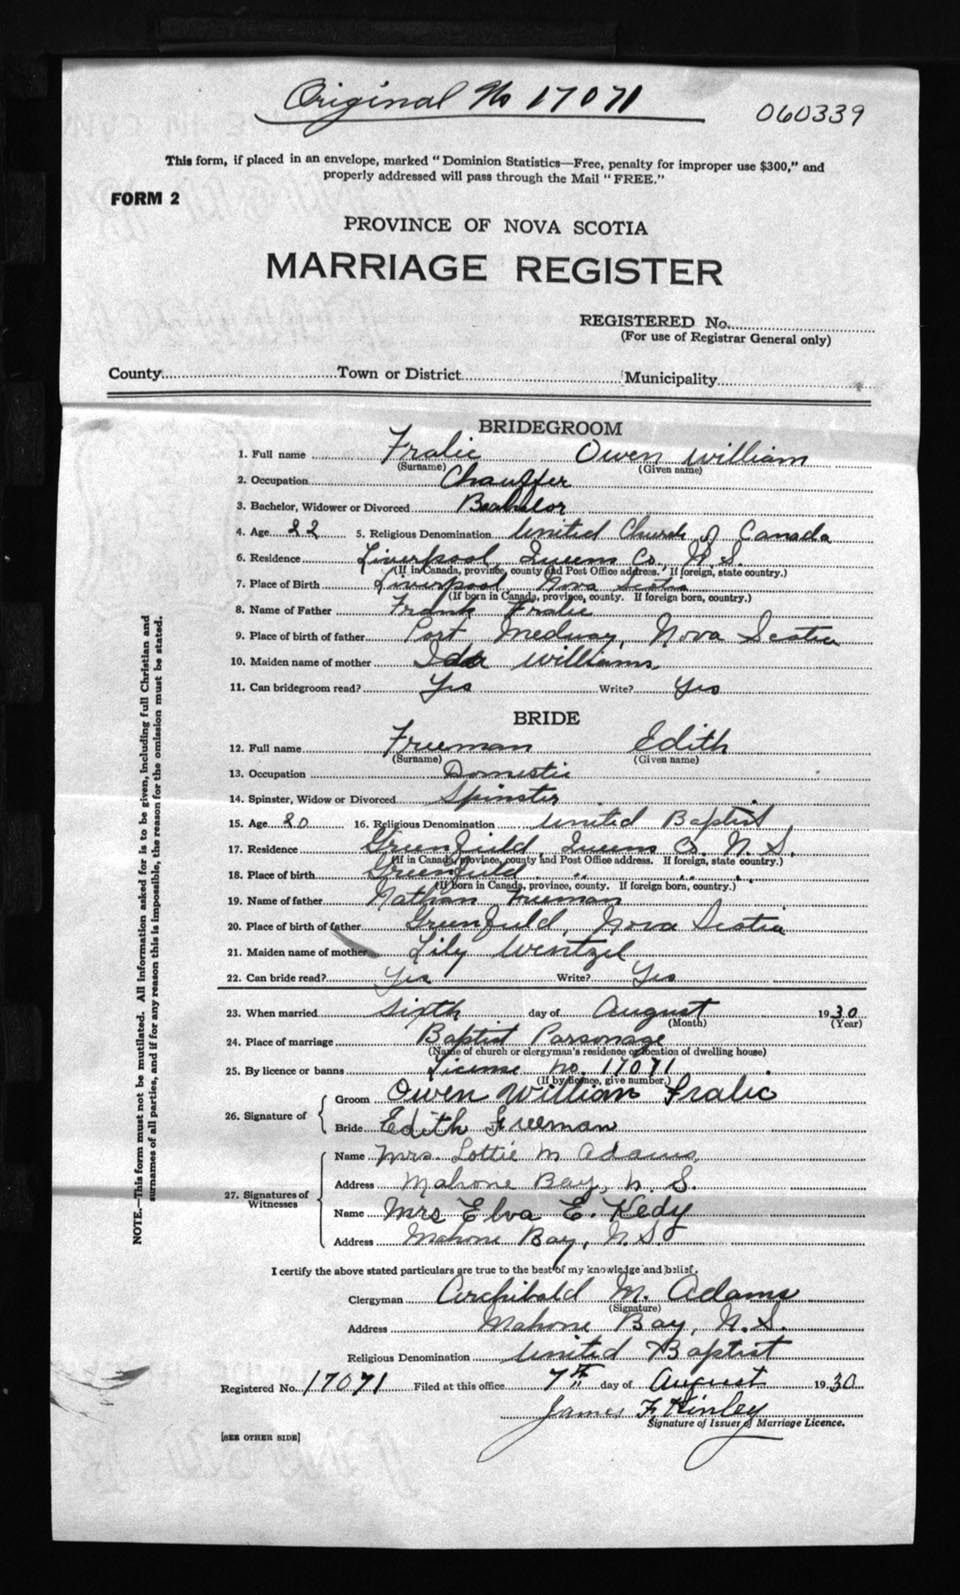 Original No 17071
060339
This form, if placed in an envelope, marked "Dominion Statistics—Free, penalty for improper use $300," and
properly addressed will pass through the Mail "FREE."
FORM 2
PROVINCE OF NOVA SCOTIA
MARRIAGE REGISTER
REGISTERED No.
(For use of Registrar General only)
County Town or District Municipality
BRIDEGROOM
1. Full name Fralic Owen William
(Surname) (Given name)
2. Occupation Chauffer
3. Bachelor, Widower or Divorced Bachelor
4. Age 22 5. Religious Denomination United Church of Canada
6. Residence Liverpool, Queens Co. N.S.
(If in Canada, province, county and Post Office address. If foreign, state country.)
7. Place of Birth Liverpool Nova Scotia
(If born in Canada, province, county. If foreign born, country.)
8. Name of Father Frank Fralic
9. Place of birth of father Port Medway, Nova Scotia
10. Maiden name of mother Ida Williams
11. Can bridegroom read? Yes Write? Yes
BRIDE
12. Full name Freeman Edith
(Surname) (Given name)
13. Occupation Domestic
14. Spinster, Widow or Divorced Spinster
15. Age 20 16. Religious Denomination United Baptist
17. Residence Greenfield, Queens Co. N.S.
(If in Canada, province, county and Post Office address. If foreign, state country.)
18. Place of birth Greenfield " " "
(If born in Canada, province, county. If foreign born, country.)
19. Name of father Nathan Freeman
20. Place of birth of father Greenfield, Nova Scotia
21. Maiden name of mother Lily Wentzel
22. Can bride read? Yes Write? Yes
23. When married sixth day of August 1930
(Month) (Year)
24. Place of marriage Baptist Parsonage
(Name of church or clergyman's residence or location of dwelling house)
25. By licence or banns License no. 17071
(If by licence, give number.)
26. Signature of Groom Owen William Fralic
Bride Edith Freeman
27. Signatures of Witnesses Name Mrs. Lottie M Adams
Address Mahone Bay, N.S.
Name Mrs Elva E. Kedy
Address Mahone Bay, N.S.
I certify the above stated particulars are true to the best of my knowledge and belief.
Clergyman Archibald M. Adams
(Signature)
Address Mahone Bay, N.S.
Religious Denomination United Baptist
Registered No. 17071 Filed at this office 7th day of August 1930
James F. Kinley
Signature of Issuer of Marriage Licence.
[SEE OTHER SIDE]
NOTE.—This form must not be mutilated. All information asked for is to be given, including full Christian and
surnames of all parties, and if for any reason this is impossible, the reason for the omission must be stated.